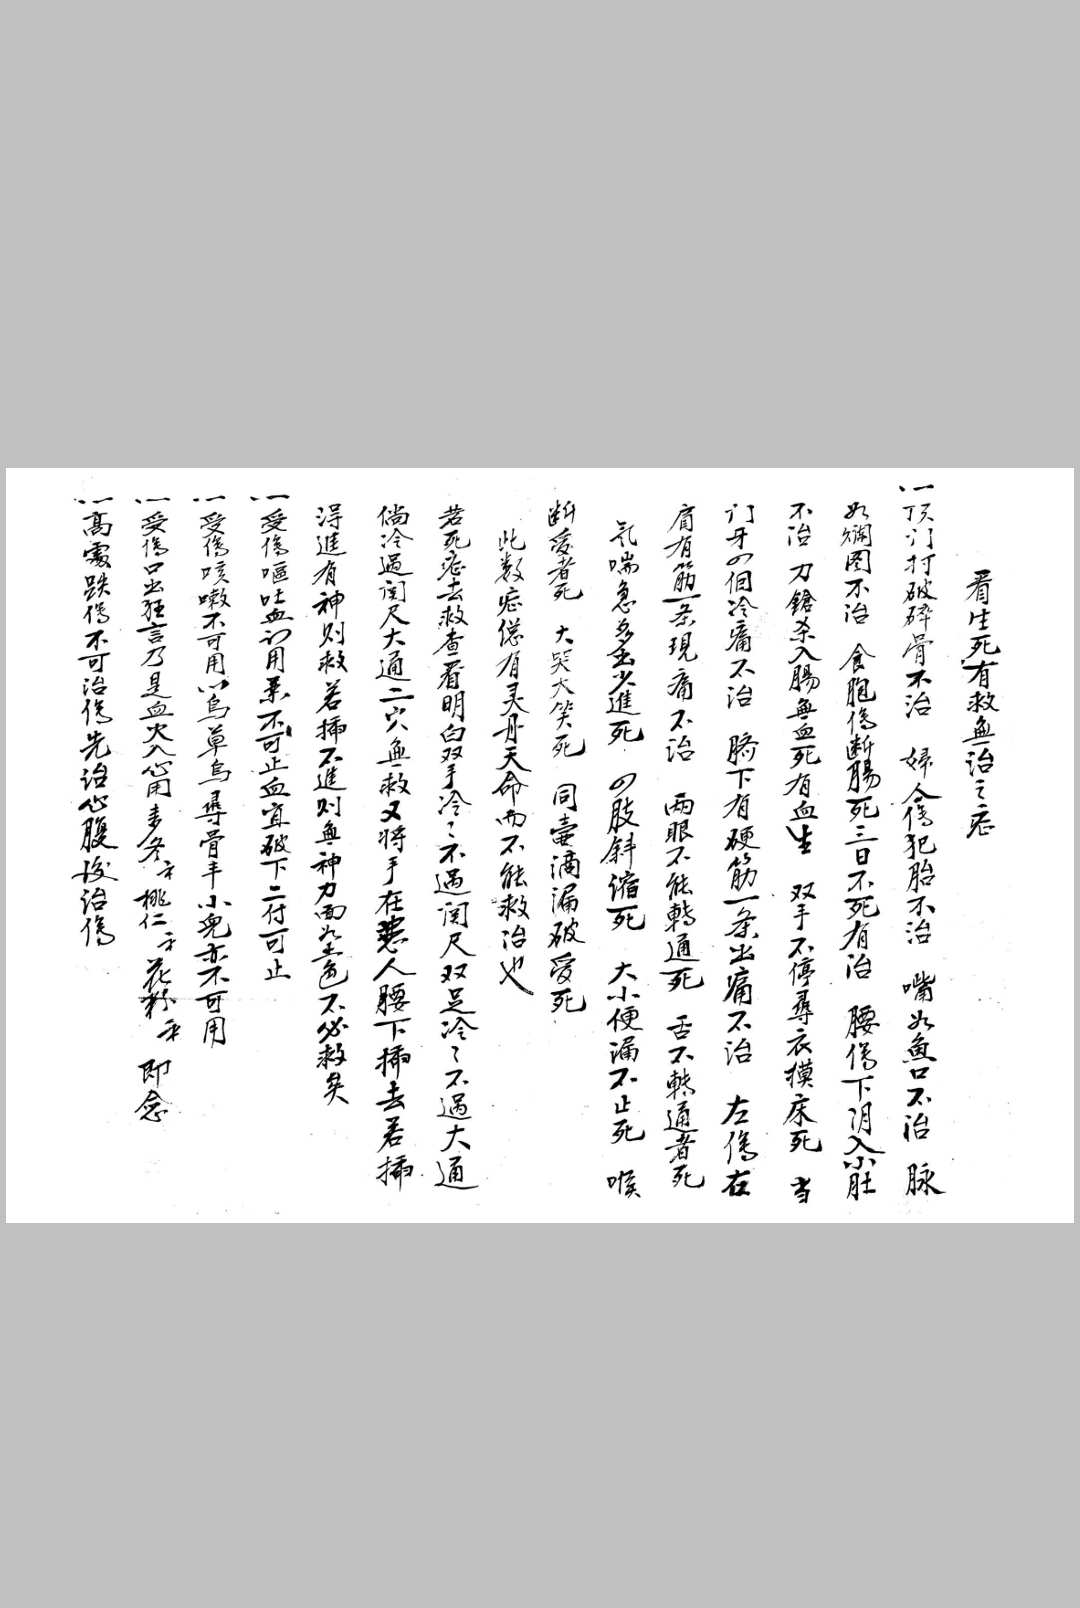 看生死有救無治之症
一頂门打破碎骨不治 婦人傷犯胎不治 嘴如魚口不治 脉
如不治 食胞傷断腸死三日不死有治 腰傷下阴入小肚
不治 刀鎗杀入腸無血死有血生 双手不停尋衣摸床死 当
门牙四個冷痛不治 臍下有硬筋一条出痛不治 左傷在
肩有筋一条現痛不治 两眼不能轉通死 舌不轉通者死
氣喘急多出少進死 四肢斜缩死 大小便漏不止死 喉
断愛者死 大哭大笑死 同壷滴漏破受死
此数症傯有灵丹天命而不能救治也
若死症去救查看明白双手冷〻不過関尺双足冷〻不過大通
倘冷過関尺大通二穴無救又将手在患人腰下插去若插
得進有神则救若插不進则無神力面如土色不必救矣
一受傷嘔吐血门用藥不可止血宜破下二付可止
一受傷咳嗽不可用川烏草烏尋骨丰小兒亦不可用
一受傷口出狂言乃是血火入心用麦冬 桃仁 花粉 即念
一高處跌傷不可治傷先治心腹後治傷